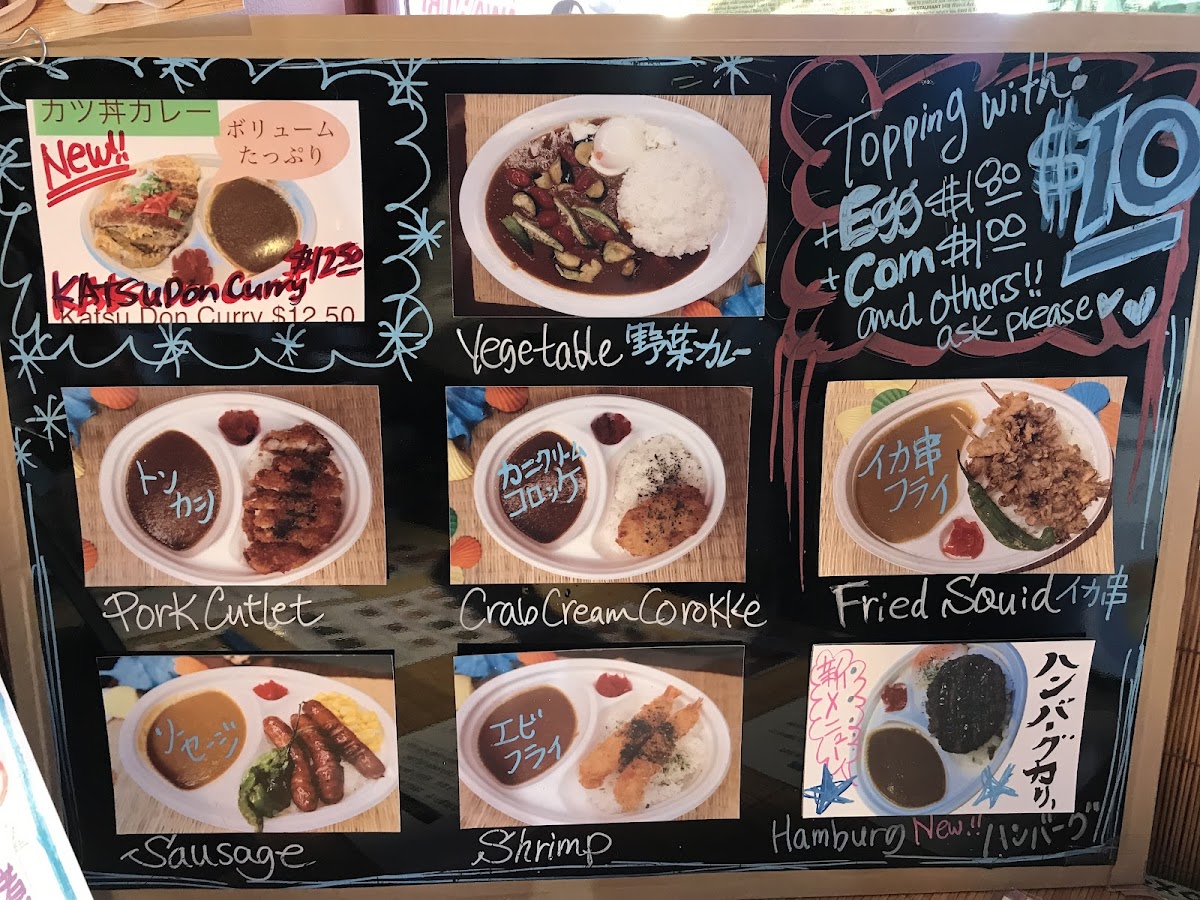 カツ丼カレー
New!!
ボリューム
たっぷり
$12.50
KATSU Don Curry
Katsu Don Curry $12.50
Vegetable 野菜カレー
Topping with:
+Egg $1.80
+Corn $1.00
$10
and others!!
ask please
トン
カツ
Pork Cutlet
カニクリーム
コロッケ
Crab Cream Corokke
イカ串
フライ
Fried Squid イカ串
ソーセージ
Sausage
エビ
フライ
Shrimp
新メニュー
ハンバーグカリー
Hamburg New!! ハンバーグ